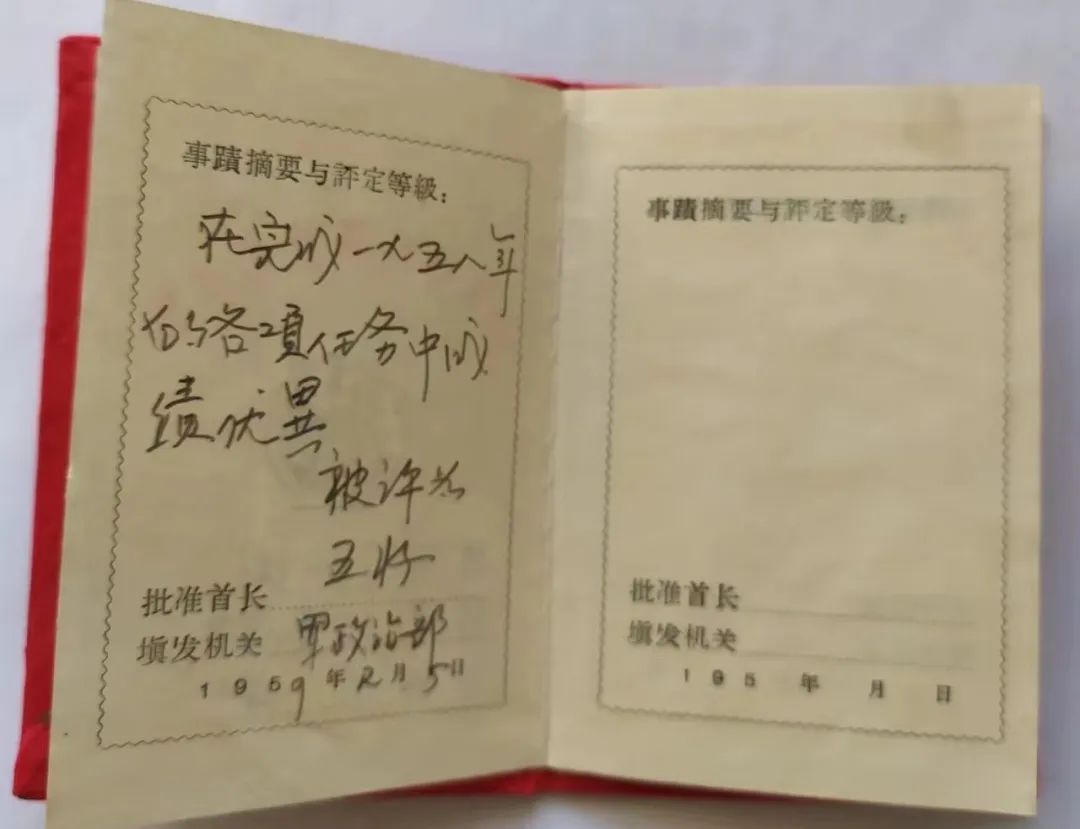 事蹟摘要与評定等級：
在完成一九五八年
的各項任务中成
績优異
被评为
五好
批准首长
填发机关 军政治部
1959年2月5日
事蹟摘要与評定等級：
批准首长
填发机关
195 年 月 日